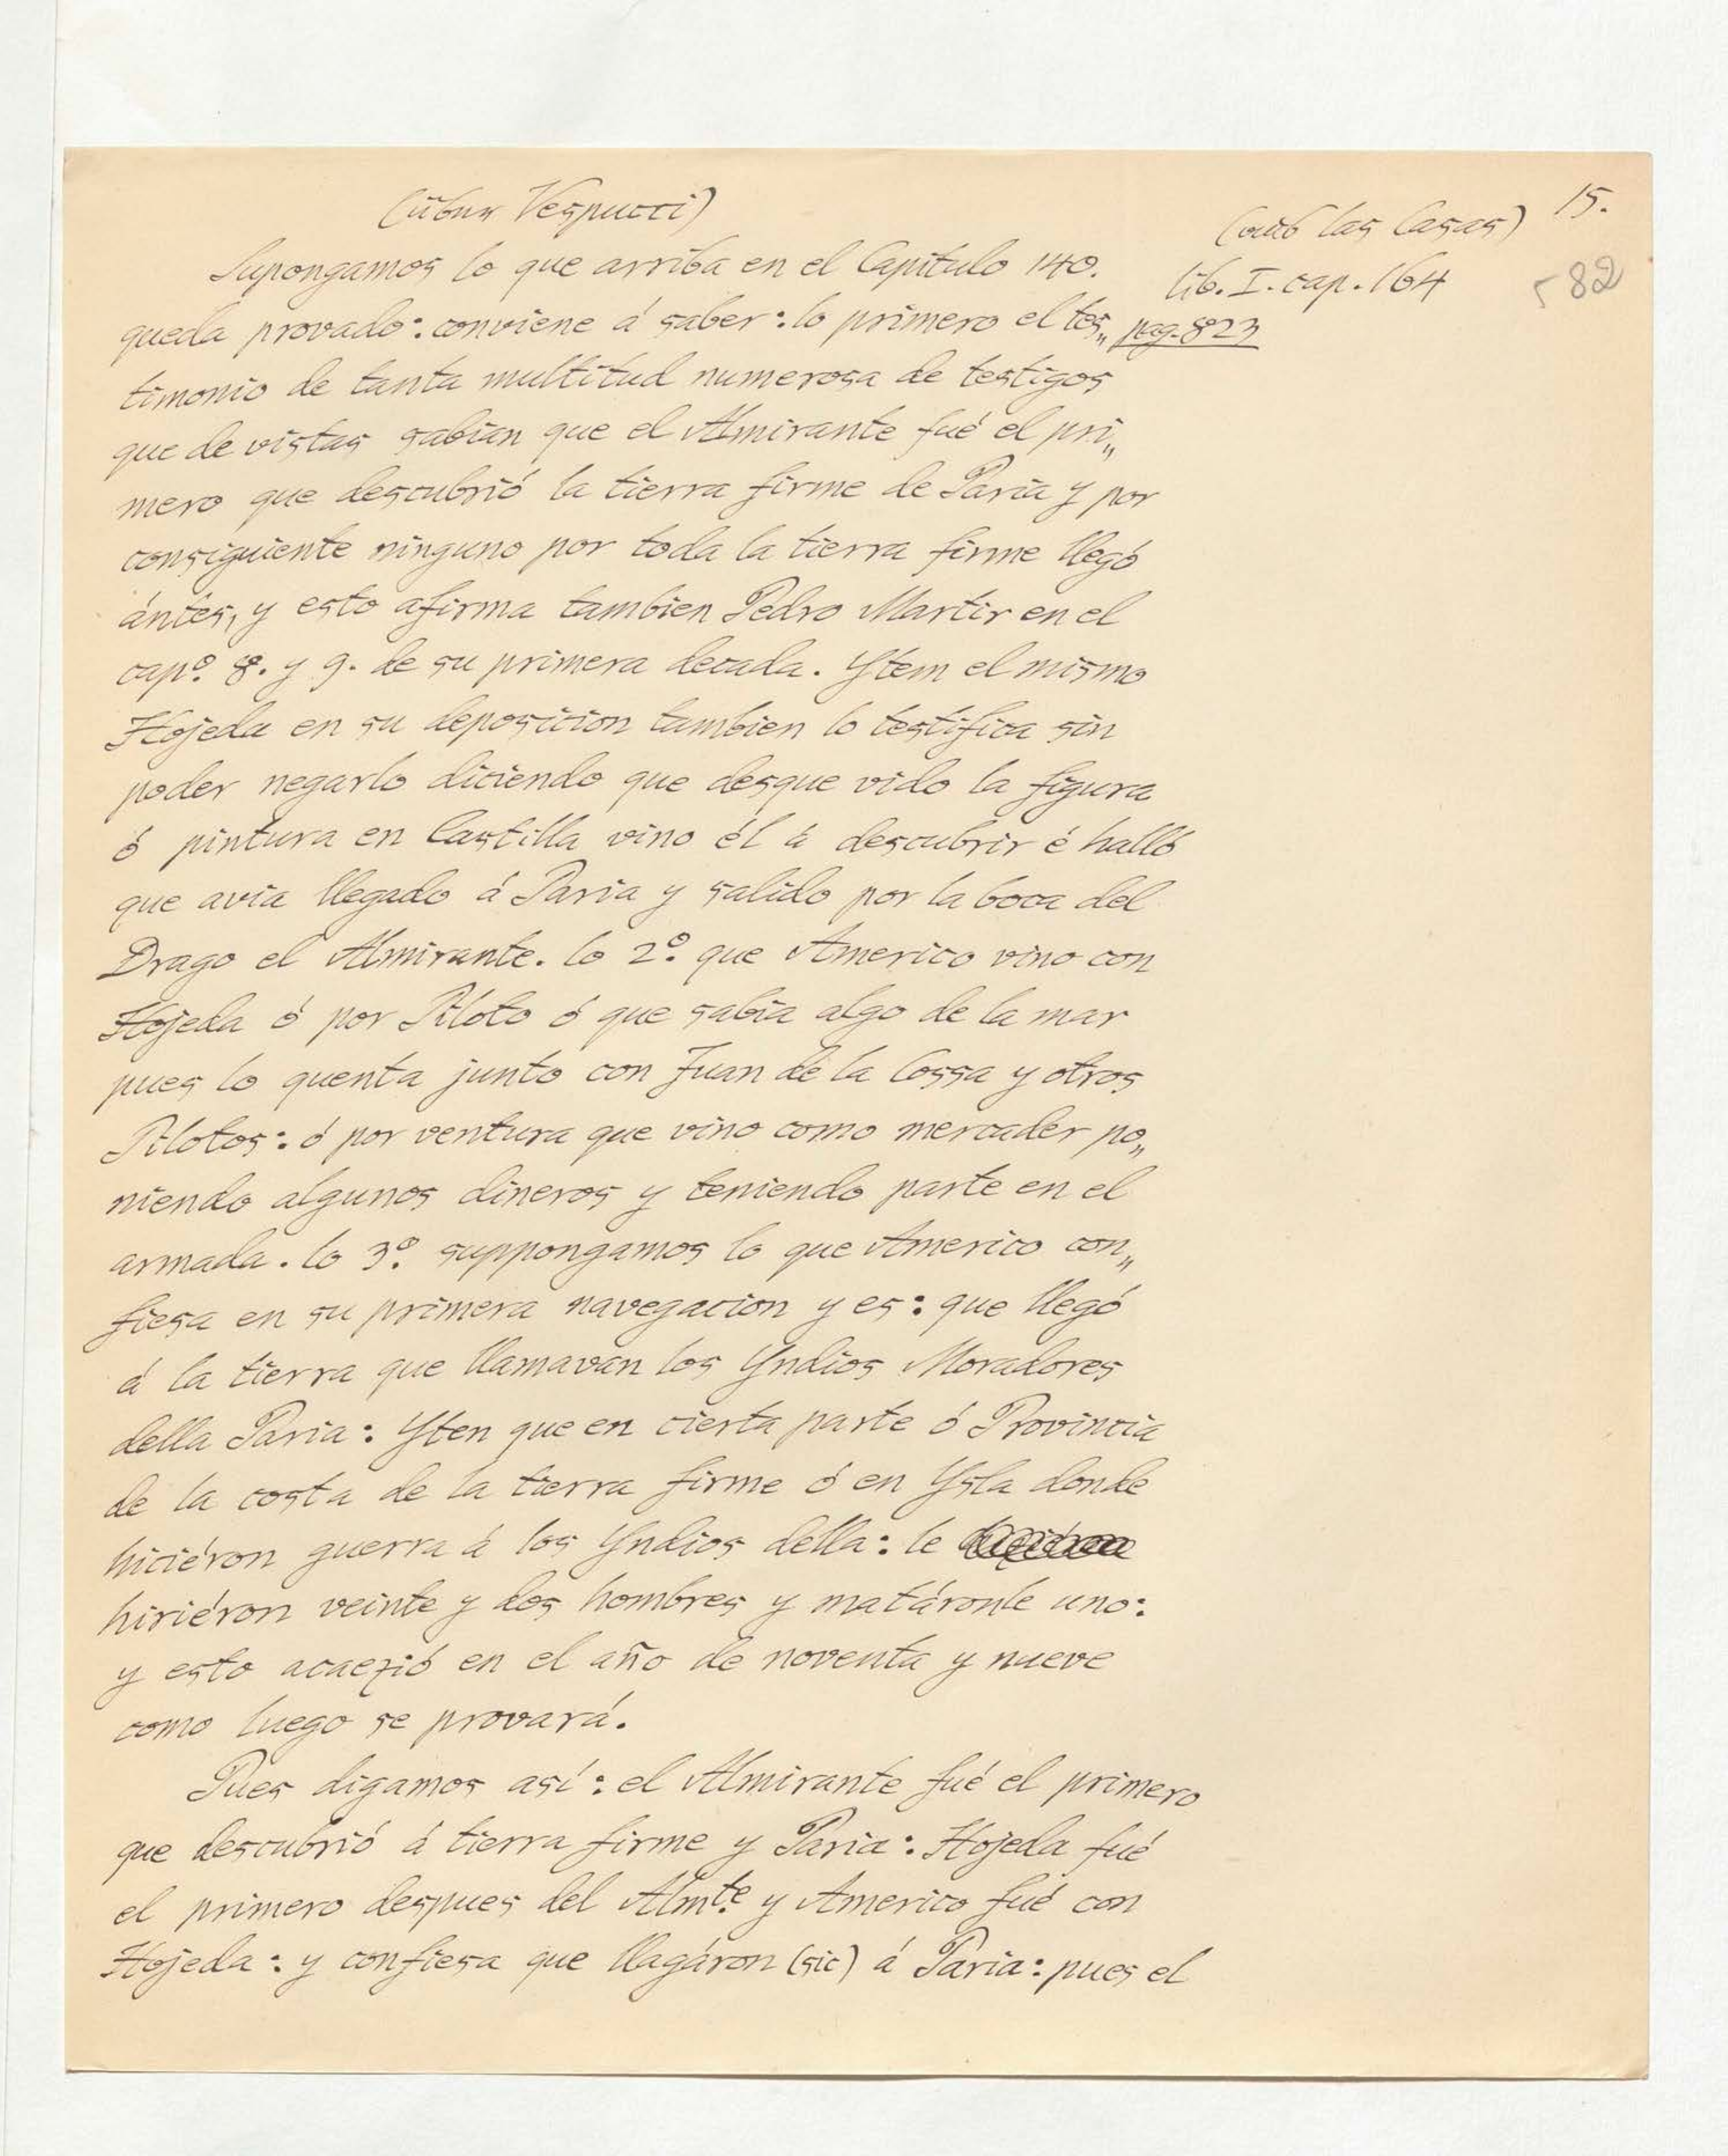 (über Vespucci)
(aus las Casas) 15.
lib. I. cap. 164
582
pag. 823
Supongamos lo que arriba en el Capítulo 140.
queda provado: conviene á saber: lo primero el tes„
timonio de tanta multitud numerosa de testigos
que de vistas sabian que el Almirante fué el pri„
mero que descubrió la tierra firme de Paria y por
consiguiente ninguno por toda la tierra firme llegó
ántes, y esto afirma tambien Pedro Martir en el
capº. 8. y 9. de su primera decada. Ytem el mismo
Hojeda en su deposicion tambien lo testifica sin
poder negarlo diciendo que desque vido la figura
ó pintura en Castilla vino él á descubrir é halló
que avia llegado á Paria y salido por la boca del
Drago el Almirante. lo 2º. que Americo vino con
Hojeda ó por Piloto ó que sabia algo de la mar
pues lo quenta junto con Juan de la Cossa y otros
Pilotos: ó por ventura que vino como mercader po„
niendo algunos dineros y teniendo parte en el
armada. lo 3º. suppongamos lo que Americo con„
fiesa en su primera navegacion y es: que llegó
á la tierra que llamavan los Yndios Moradores
della Paria: Yten que en cierta parte ó Provincia
de la costa de la tierra firme ó en Ysla donde
hiciéron guerra á los Yndios della: le
hiriéron veinte y dos hombres y matáronle uno:
y esto acaezió en el año de noventa y nueve
como luego se provará.
Pues digamos así: el Almirante fué el primero
que descubrió á tierra firme y Paria: Hojeda fué
el primero despues del Almte. y Americo fué con
Hojeda: y confiesa que llagáron (sic) á Paria: pues el